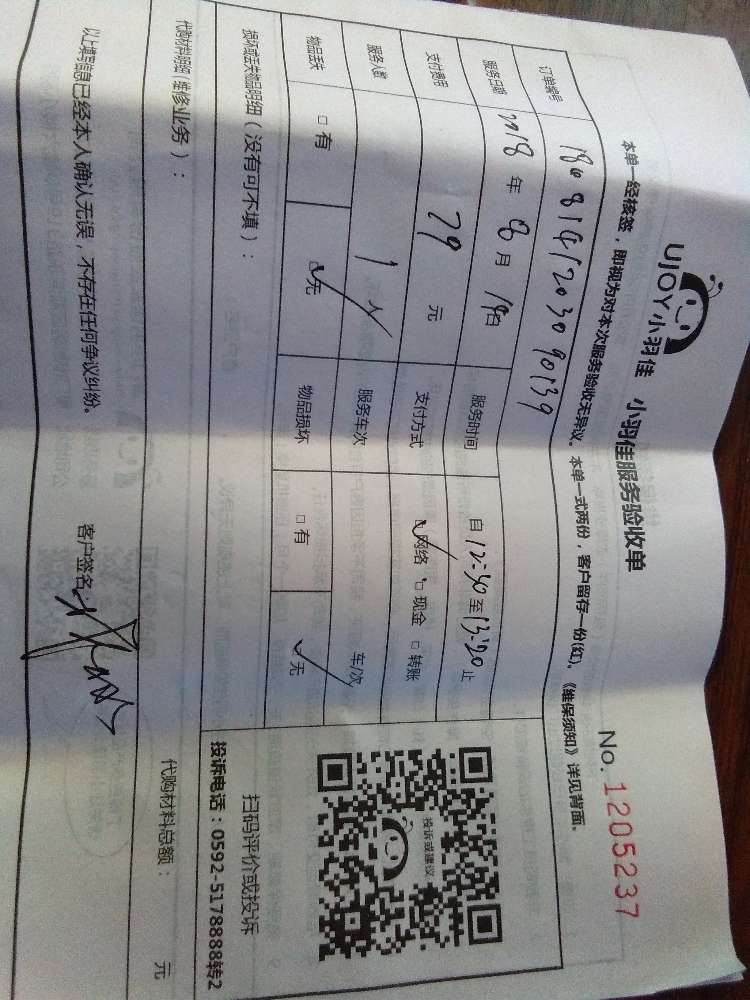 UJOY小羽佳 小羽佳服务验收单
No. 1205237
本单一经核签，即视为对本次服务验收无异议。本单一式两份，客户留存一份(红)。《维保须知》详见背面。
订单编号 1808141203090139
服务日期 2018 年 8 月 18 日 服务时间 自 12:30 至 13:20 止
支付费用 79 元 支付方式 ☑网络 □现金 □转账
服务人数 1 人 服务车次 车/次
物品丢失 □有 ☑无 物品损坏 □有 ☑无
投诉或建议
扫码评价或投诉
投诉电话：0592-5178888转2
损坏或丢失物品明细（没有可不填）：
代购材料明细（维修业务）： 代购材料总额： 元
以上填写信息已经本人确认无误，不存在任何争议纠纷。 客户签名：